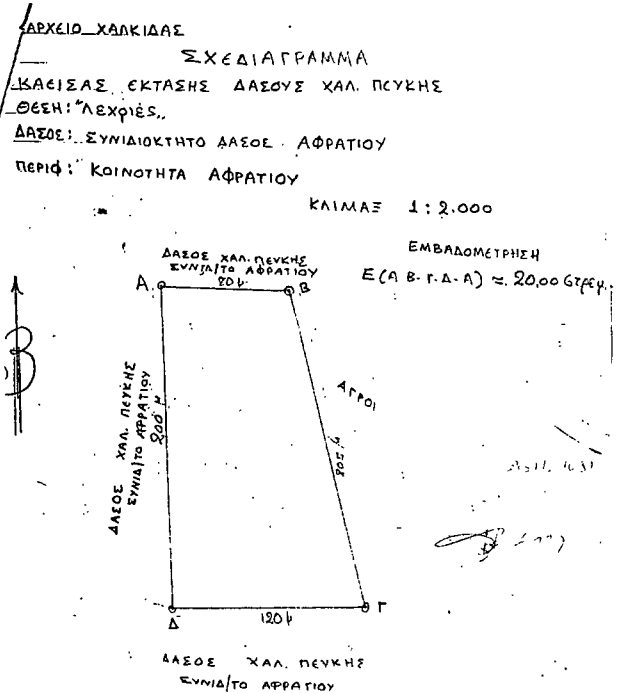 ΑΡΧΕΙΟ ΧΑΛΚΙΔΑΣ
ΣΧΕΔΙΑΓΡΑΜΜΑ
ΚΑΕΙΣΑΣ ΕΚΤΑΣΗΣ ΔΑΣΟΥΣ ΧΑΛ. ΠΕΥΚΗΣ
ΘΕΣΗ: "Λεχριές,,
ΔΑΣΟΣ: ΣΥΝΙΔΙΟΚΤΗΤΟ ΔΑΣΟΣ ΑΦΡΑΤΙΟΥ
ΠΕΡΙΦ: ΚΟΙΝΟΤΗΤΑ ΑΦΡΑΤΙΟΥ
ΚΛΙΜΑΞ 1:2.000
ΕΜΒΑΔΟΜΕΤΡΗΣΗ
Ε(Α Β-Γ-Δ-Α) ≈ 20,00 στρέμ.
ΔΑΣΟΣ ΧΑΛ. ΠΕΥΚΗΣ
ΣΥΝΙΔ/ΤΟ ΑΦΡΑΤΙΟΥ
80 μ.
Α
Β
Β
ΑΓΡΟΙ
205 μ
ΔΑΣΟΣ ΧΑΛ. ΠΕΥΚΗΣ
ΣΥΝΙΔ/ΤΟ ΑΦΡΑΤΙΟΥ
200 μ
Δ
120 μ
Γ
ΔΑΣΟΣ ΧΑΛ. ΠΕΥΚΗΣ
ΣΥΝΙΔ/ΤΟ ΑΦΡΑΤΙΟΥ